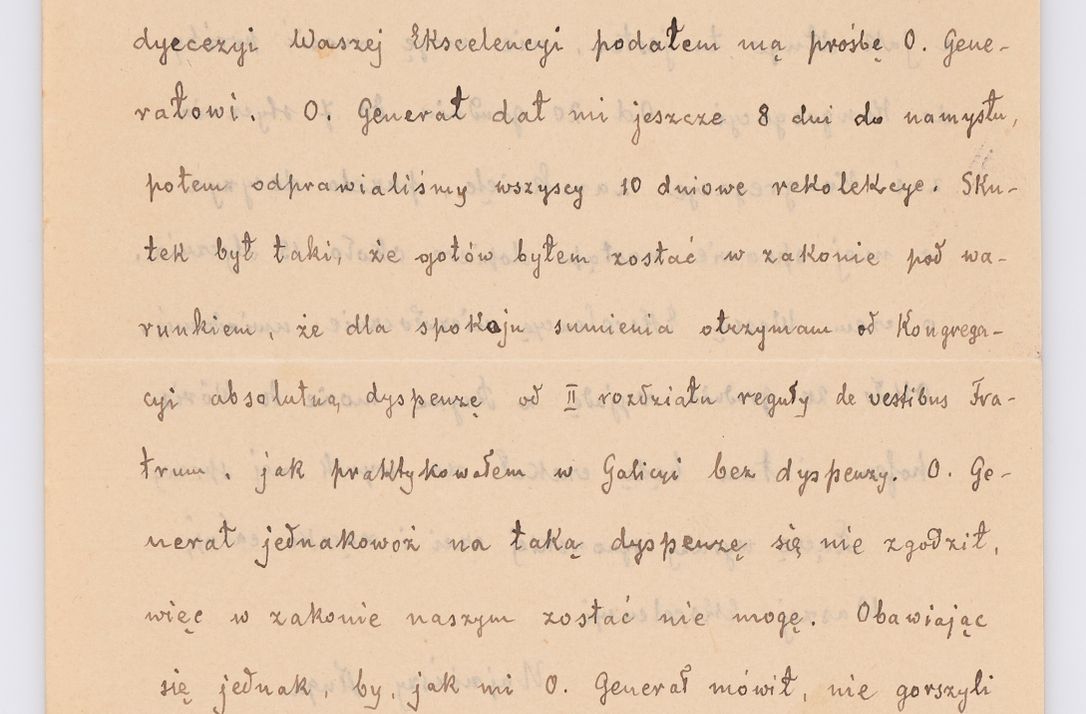 dyecezyi Waszej Ekscelencyi podałem mą prośbę O. Gene-
rałowi. O. Generał dał mi jeszcze 8 dni do namysłu,
potem odprawialiśmy wszyscy 10 dniowe rekolekcye. Sku-
tek był taki, że gotów byłem zostać w zakonie pod wa-
runkiem, że dla spokoju sumienia otrzymam od Kongrega-
cyi absolutną dyspenzę od II rozdziału reguły de vestibus Fra-
trum, jak praktykowałem w Galicyi bez dyspenzy. O. Ge-
nerał jednakowoż na taką dyspenzę się nie zgodził,
więc w zakonie naszym zostać nie mogę. Obawiając
się jednak, by, jak mi O. Generał mówił, nie gorszyli